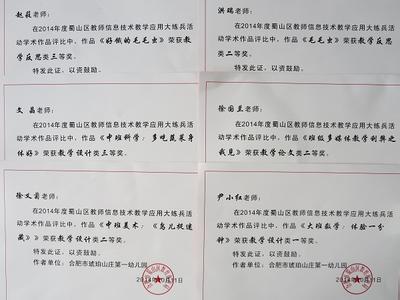 赵薇老师：
在2014年度蜀山区教师信息技术教学应用大练兵活
动学术作品评比中，作品《好饿的毛毛虫》荣获教
学反思类三等奖。
特发此证，以资鼓励。
洪瑞老师：
在2014年度蜀山区教师信息技术教学应用大练兵活
动学术作品评比中，作品《毛毛虫》荣获教学反思
类二等奖。
特发此证，以资鼓励。
文晶老师：
在2014年度蜀山区教师信息技术教学应用大练兵活
动学术作品评比中，作品《中班科学：多吃蔬菜身
体好》荣获教学设计类三等奖。
特发此证，以资鼓励。
徐国兰老师：
在2014年度蜀山区教师信息技术教学应用大练兵活
动学术作品评比中，作品《班级多媒体教学利弊之
我见》荣获教学论文类二等奖。
特发此证，以资鼓励。
徐文前老师：
在2014年度蜀山区教师信息技术教学应用大练兵活
动学术作品评比中，作品《中班美术：《鸟儿捉迷
藏》》荣获教学设计类二等奖。
特发此证，以资鼓励。
作者单位：合肥市琥珀山庄第一幼儿园
尹小红老师：
在2014年度蜀山区教师信息技术教学应用大练兵活
动学术作品评比中，作品《大班数学：体验一分
钟》荣获教学设计类一等奖。
特发此证，以资鼓励。
作者单位：合肥市琥珀山庄第一幼儿园